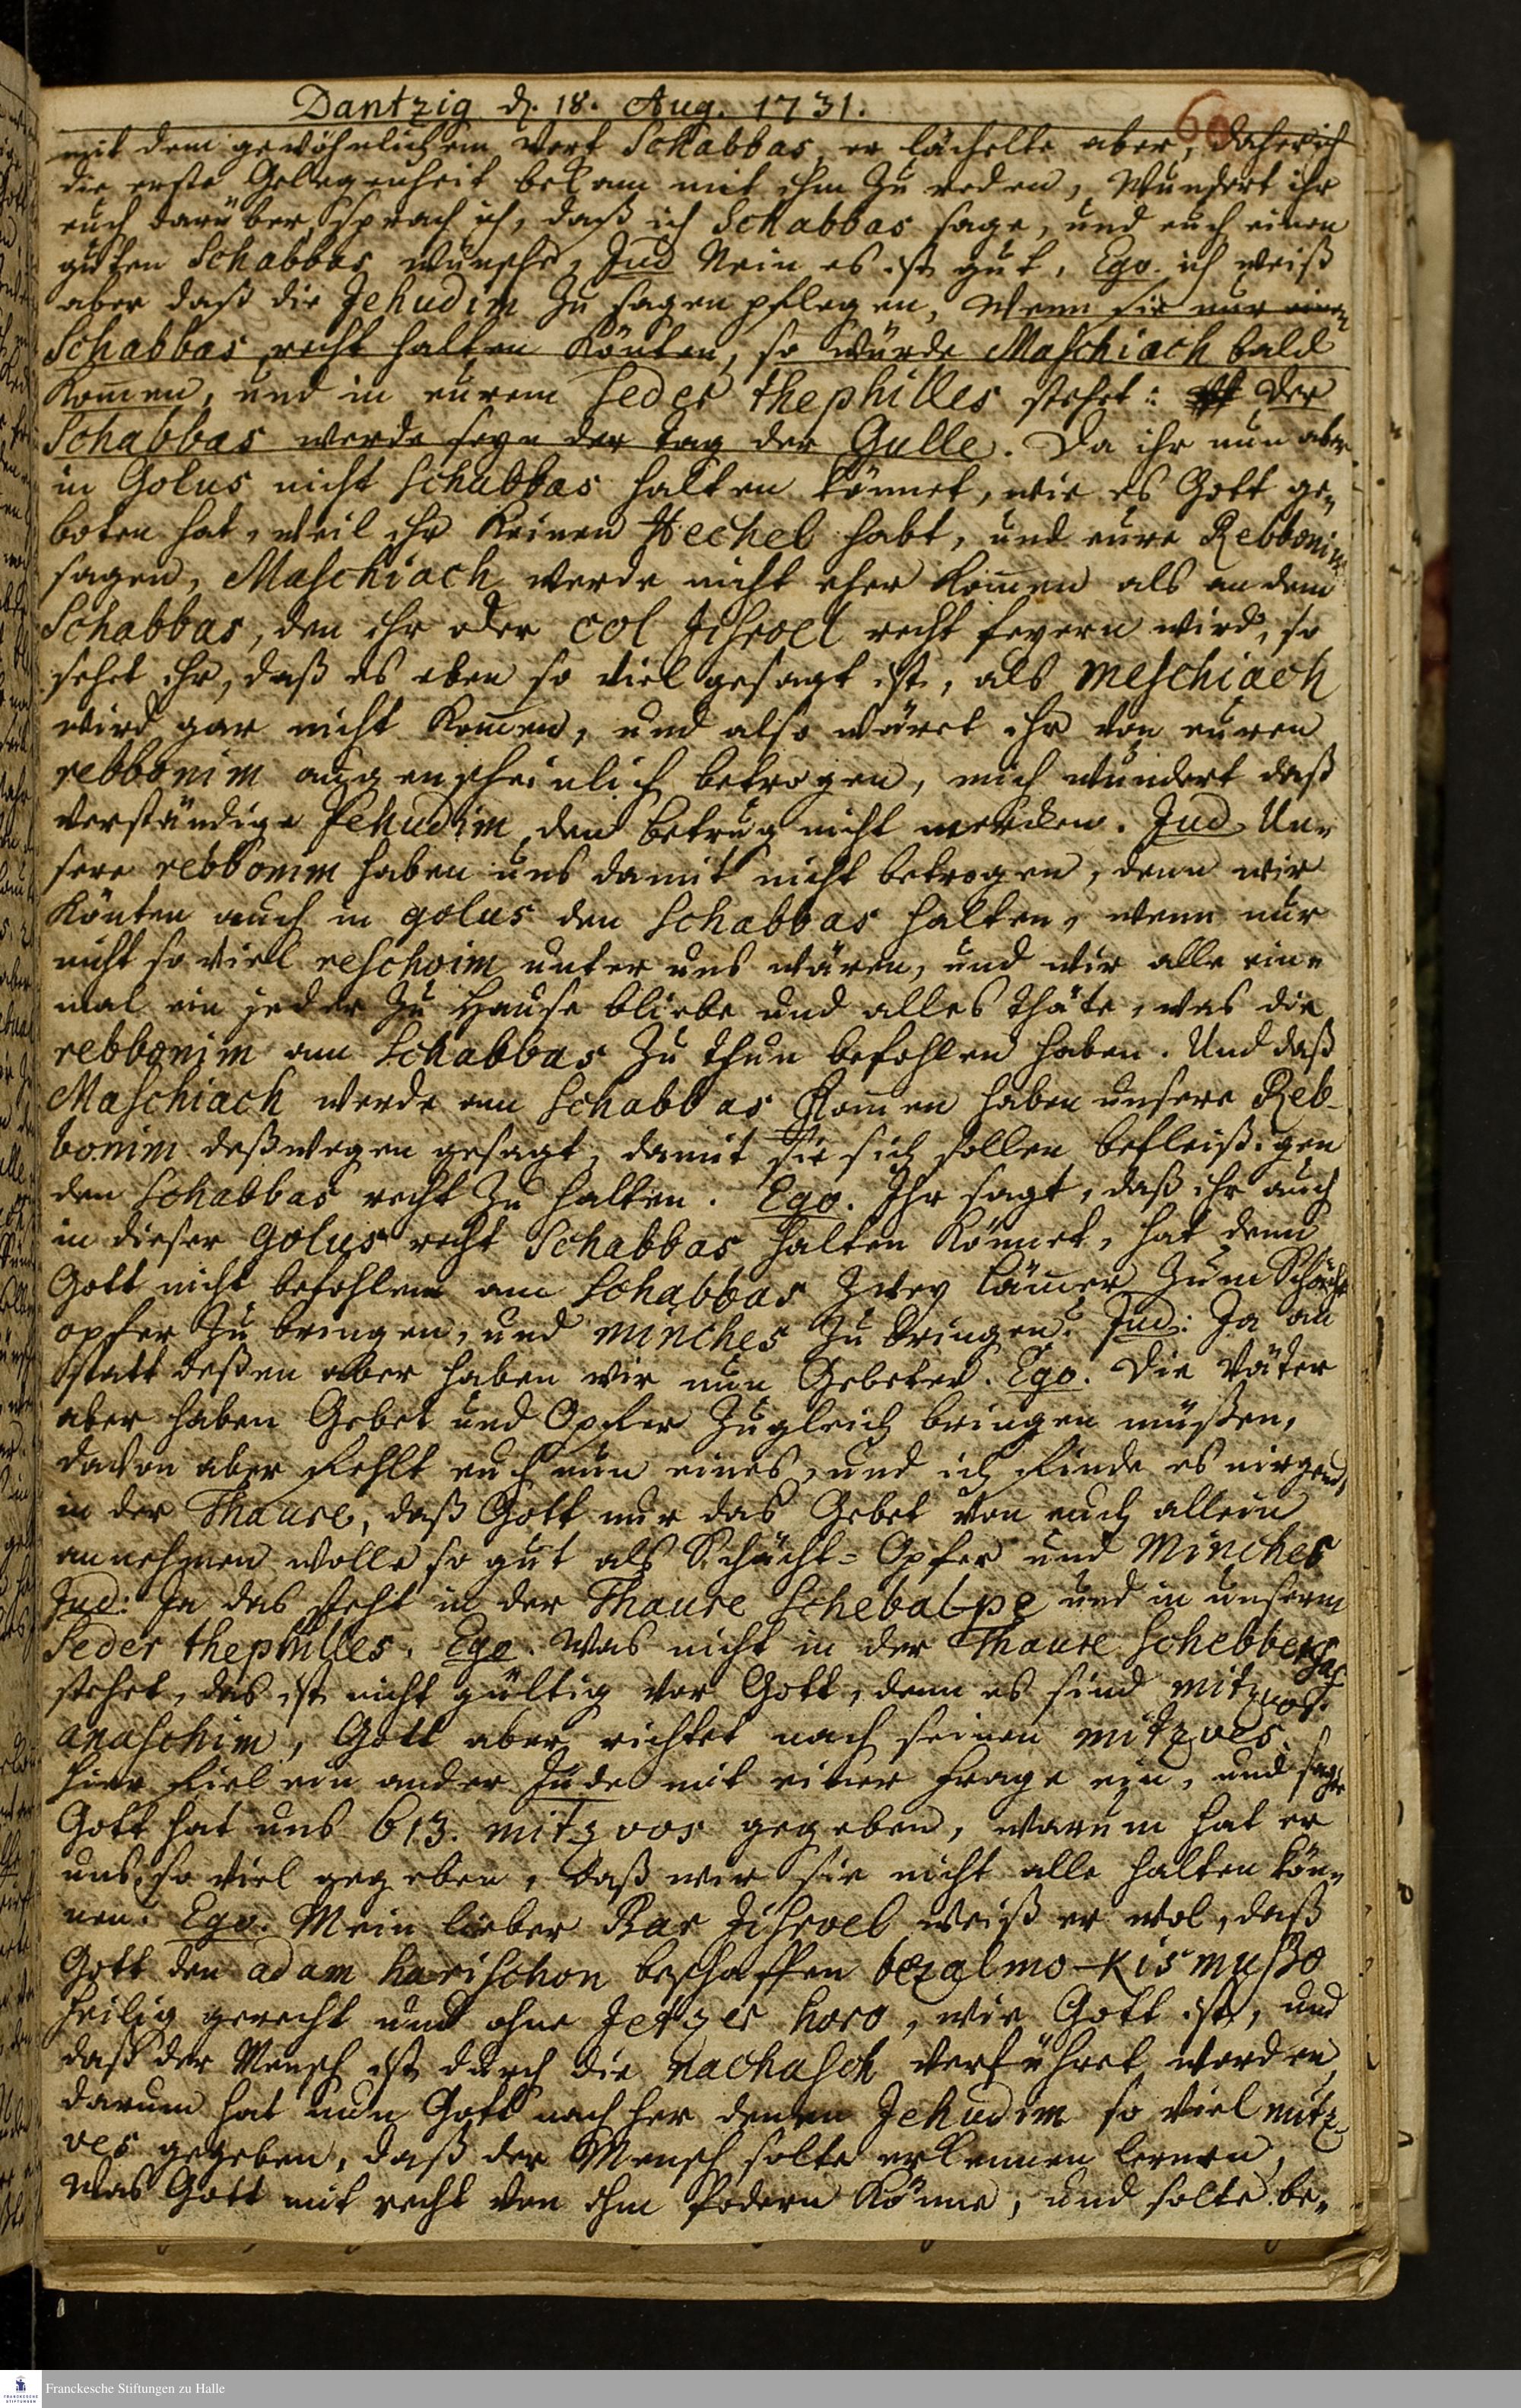 Dantzig d. 18. Aug. 1731.
60
mit dem gewöhnlichem wort Schabbas, er lächelte aber, daher ich
die erste Gelegenheit bekam mit ihm zu reden, Wundert ihr
euch darüber, sprach ich, daß ich Schabbas sage, und euch einen
guten Schabbas wünsche, Jud Nein es ist gut, Ego. ich weiß
aber daß die Jehudim zu sagen pflegen, Wenn sie nur einen
Schabbas recht halten könten, so würde Maschiach bald
kom̅en, und in eurem seder thephilles stehet: Der
Schabbas werde seyn der tag der Gulle. Da ihr nun aber
in Golus nicht schabbas halten könnet, wie es Gott ge-
boten hat, weil ihr keinen Hechel habt, und eure Rebbonim
sagen, Maschiach werde nicht eher kom̅en als an dem
Schabbas, den ihr oder col Jisroel recht feyern wird, so
sehet ihr, daß es eben so viel gesagt ist, als Meschiach
wird gar nicht kom̅en, und also wäret ihr von euren
rebbonim augenscheinlich betrogen, mich wundert daß
verständige Jehudim den betrug nicht mercken. Jud Un-
sere rebbonim haben uns damit nicht betrogen, denn wir
könten auch in golus den Schabbas halten, wenn nur
nicht so viel reschoim unter uns wären, und wir alle ein-
mal ein jeder zu Hause bliebe und alles thäte, was die
rebbonim am Schabbas zu thun befohlen haben. Und daß
Maschiach werde am Schabbas kom̅en haben unsere Reb-
bonim deßwegen gesagt, damit sie sich sollen befleißigen
den Schabbas recht zu halten. Ego. Ihr sagt, daß ihr auch
in dieser Golus recht Schabbas halten könnet, hat denn
Gott nicht befohlen am Schabbas zwey läm̅er zum Schächt
opfer zu bringen, und minches zu bringen? Jud: Ja an
statt deßen aber haben wir nun Gebeter. Ego. Die Väter
aber haben Gebet und Opfer zugleich bringen müßen,
davon aber fehlt euch nun eines, und ich finde es nirgends
in der Thaure, daß Gott nur das Gebet von euch allein
annehmen wolle so gut als Schächt-Opfer und Minches
Jud: Ja das steht in der Thaure Schebal-pe und in unserm
Seder thephilles. Ego. Was nicht in der Thaure Schebbecsaf
stehet, das ist nicht gültig vor Gott, denn es sind mitzvos.
anaschim, Gott aber richtet nach seinen mitzves.
Hier fiel ein ander Jude mit einer Frage ein, und sagte
Gott hat uns 613. mitzvos gegeben, warum hat er
uns so viel gegeben, daß wir sie nicht alle halten kön-
nen. Ego. Mein lieber Bar Jisroel weiß er wol, daß
Gott den adam harischon beschaffen bezalmo-kismußo
heilig gerecht und ohne Jetzer horo, wie Gott ist, und
daß der Mensch ist durch die nachasch verführet worden,
darum hat nun Gott nach her denen Jehudim so viel mitz-
ves gegeben, daß der Mensch solte erkennen lernen,
Was Gott mit recht von ihm fodern könne, und solte be-
Franckesche Stiftungen zu Halle